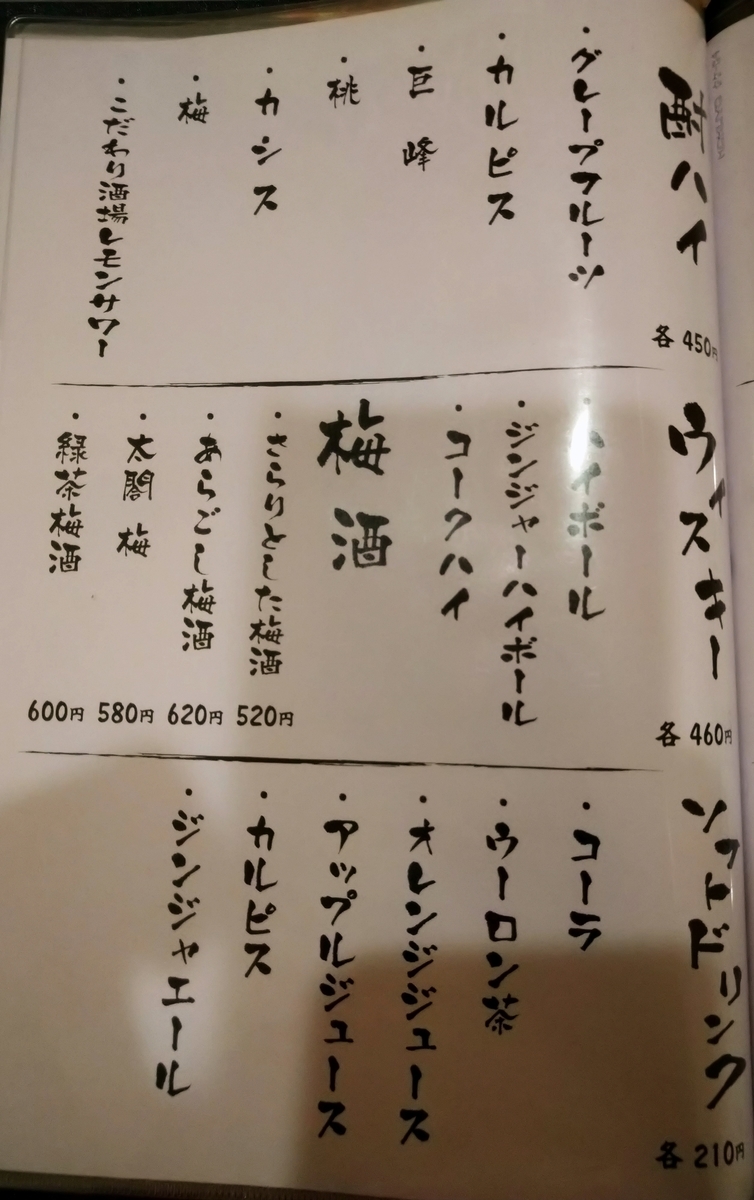 酎ハイ
各 450円
・グレープフルーツ
・カルピス
・巨峰
・桃
・カシス
・梅
・こだわり酒場レモンサワー
ウィスキー
各 460円
・ハイボール
・ジンジャーハイボール
・コークハイ
梅酒
・さらりとした梅酒 520円
・あらごし梅酒 620円
・太閤梅 580円
・緑茶梅酒 600円
ソフトドリンク
各 210円
・コーラ
・ウーロン茶
・オレンジジュース
・アップルジュース
・カルピス
・ジンジャエール